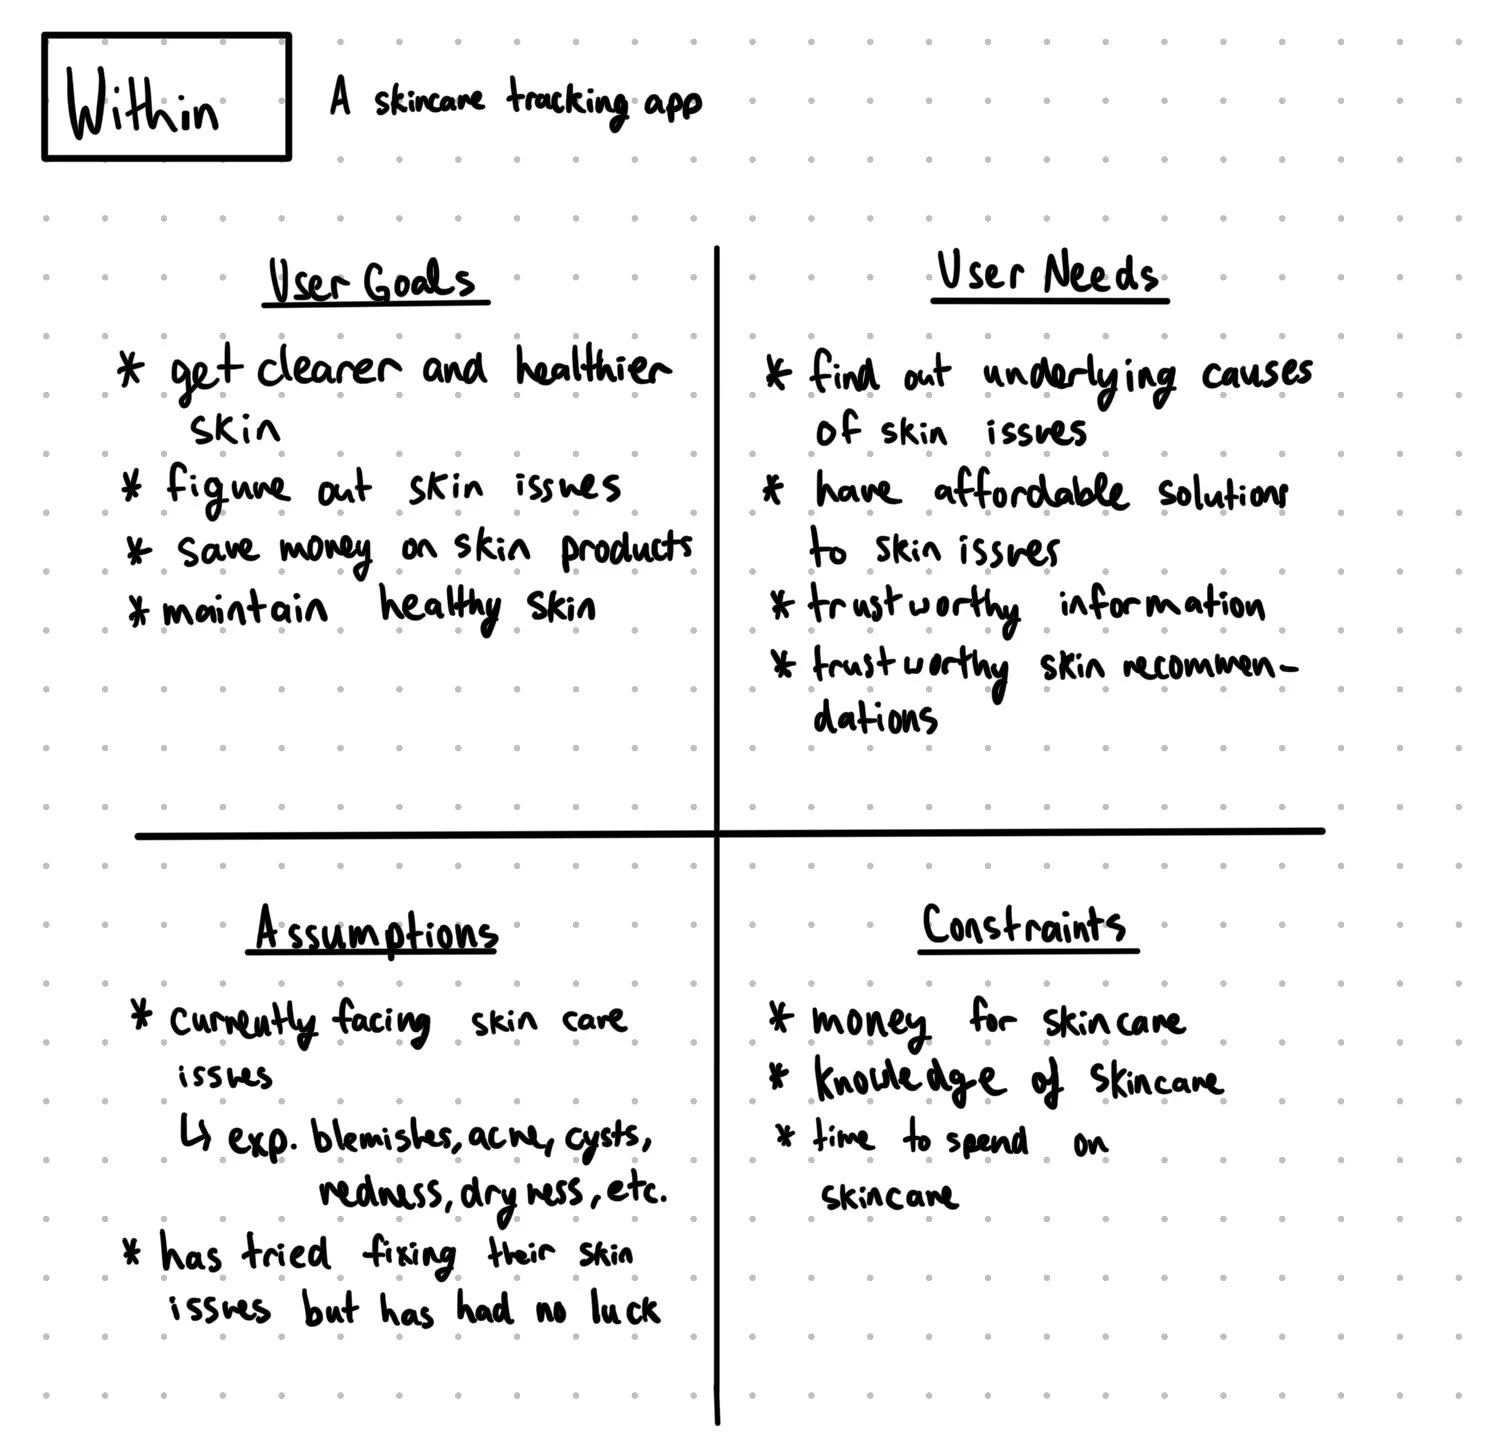 Within
A skincare tracking app
User Goals
* get clearer and healthier
skin
* figure out skin issues
* save money on skin products
* maintain healthy skin
User Needs
* find out underlying causes
of skin issues
* have affordable solutions
to skin issues
* trustworthy information
* trustworthy skin recommen-
dations
Assumptions
* currently facing skin care
issues
↳ exp. blemishes, acne, cysts,
redness, dryness, etc.
* has tried fixing their skin
issues but has had no luck
Constraints
* money for skincare
* knowledge of skincare
* time to spend on
skincare